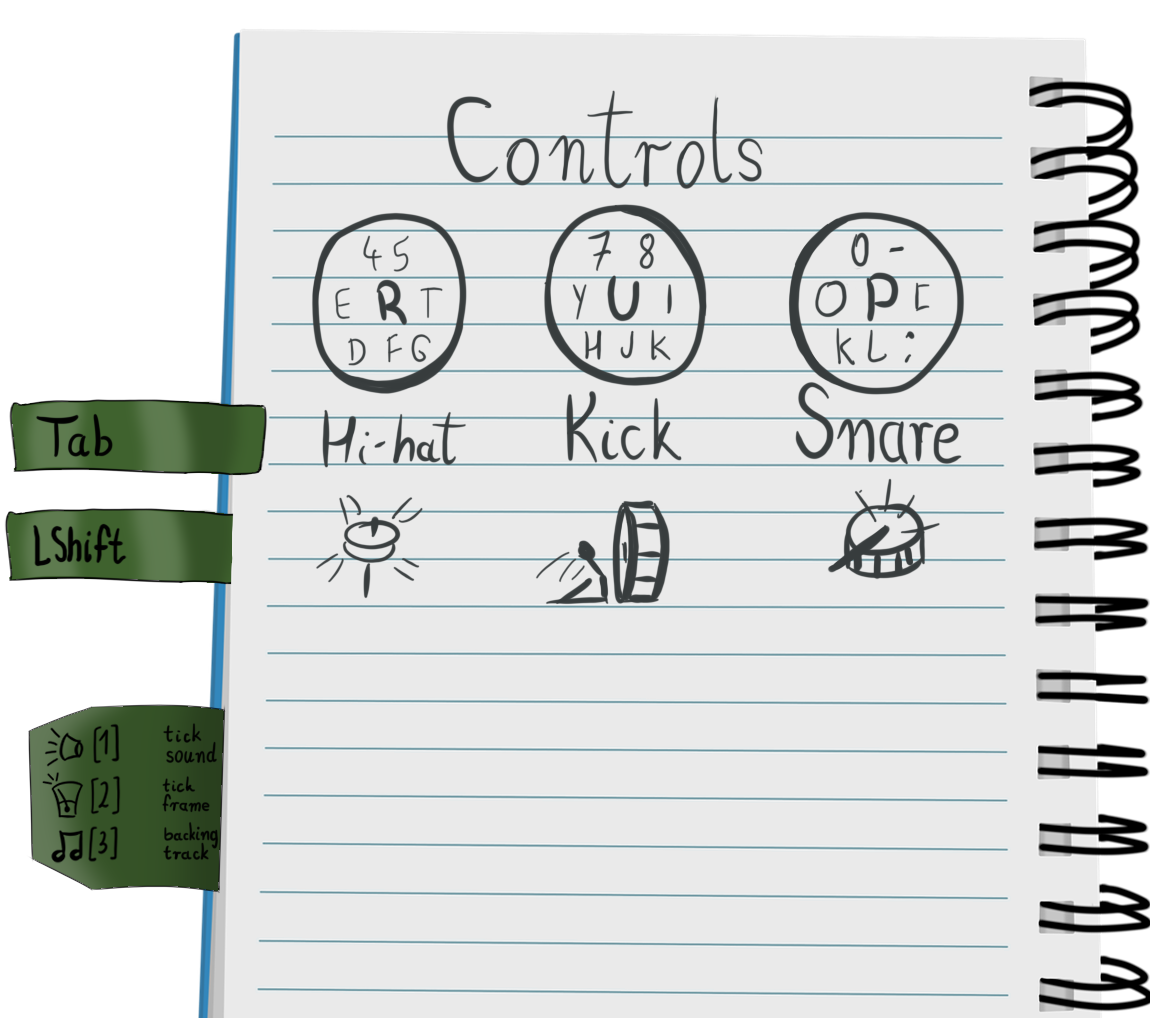 Controls
4 5
E R T
D F G
7 8
Y U I
H J K
0 -
O P [
K L ;
Tab
Hi-hat
Kick
Snare
LShift
[1] tick sound
[2] tick frame
[3] backing track